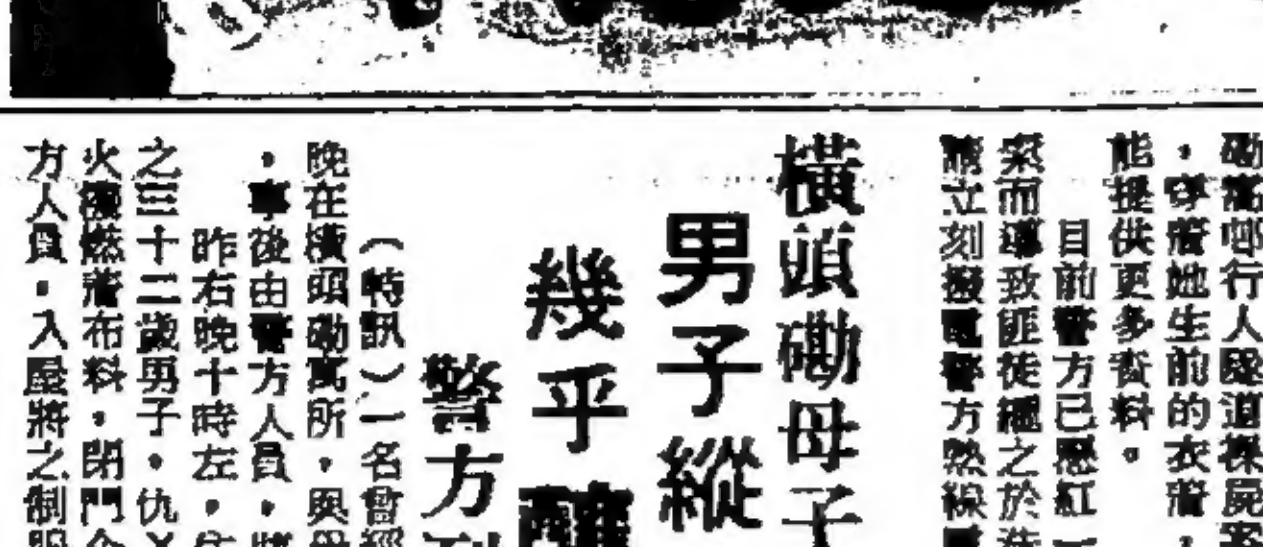 磡富邨行人隧道裸屍案
，穿着她生前的衣着，
能提供更多資料。
目前警方已懸紅一
案而導致匪徒繩之於法
請立刻撥電警方熱線
橫頭磡母子
男子縱
幾乎釀
警方
（特訊）一名曾經
晚在橫頭磡寓所，與母
，事後由警方人員，將
昨右晚十時左，住
之三十二歲男子，仇X
火種燃着布料，閉門企
方人員，入屋將之制服